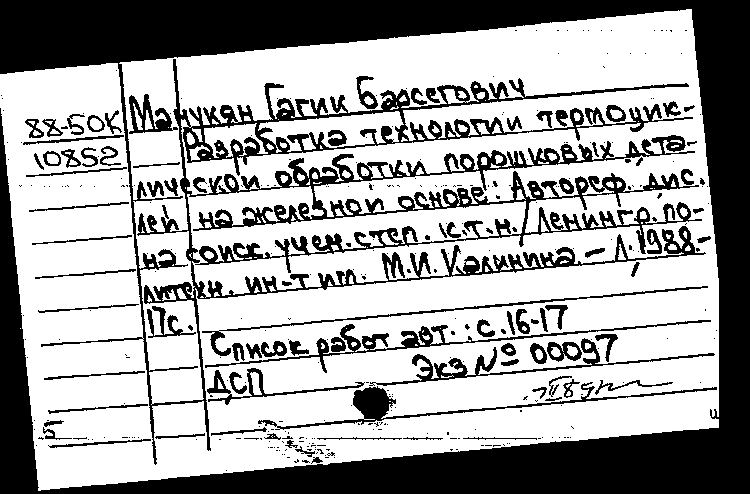 88-50К
10852
Манукян Гагик Барсегович
Разработка технологии термоцик-
лической обработки порошковых дета-
лей на железной основе: Автореф. дис.
на соиск. учен. степ. к.т.н. / Ленингр. по-
литехн. ин-т им. М.И. Калинина. - Л., 1988.-
17с.
Список работ авт.: с. 16-17
ДСП Экз № 00097
Б